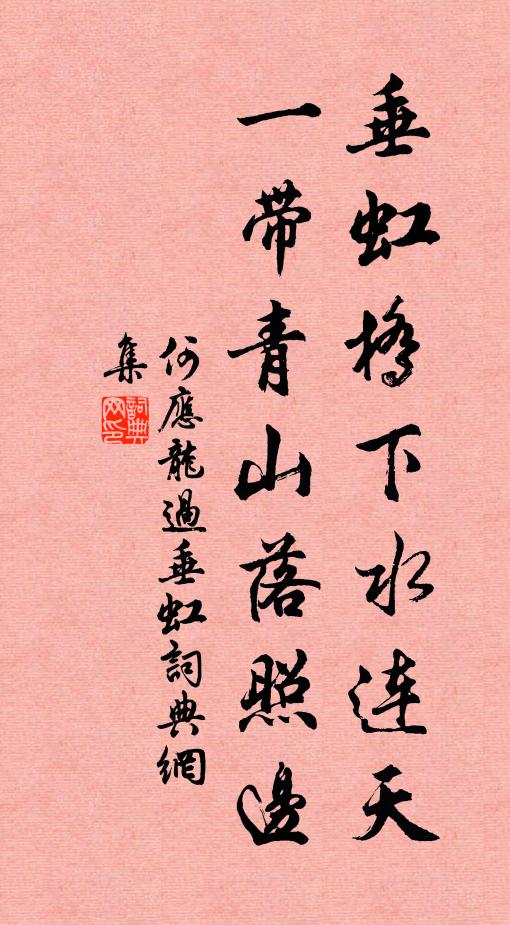 垂虹橋下水连天
一帶青山落照邊
何應龍過垂虹詞典網
集
詞典
网印